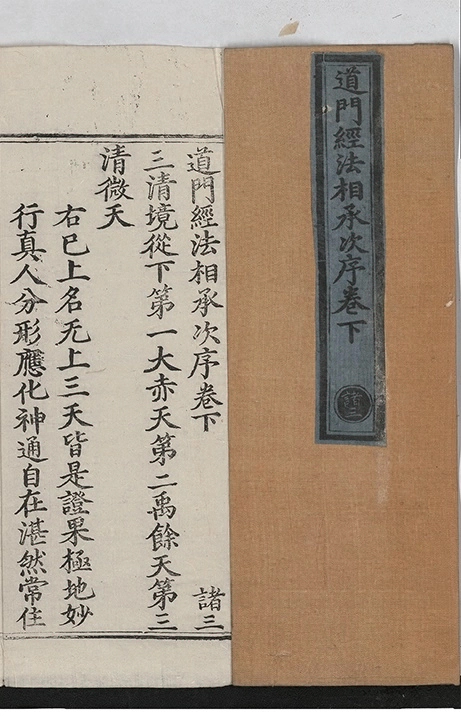 道門經法相承次序卷下
諸三
道門經法相承次序卷下 諸三
三清境從下第一大赤天第二禹餘天第三
清微天
右已上名无上三天皆是證果極地妙
行真人分形應化神通自在湛然常住